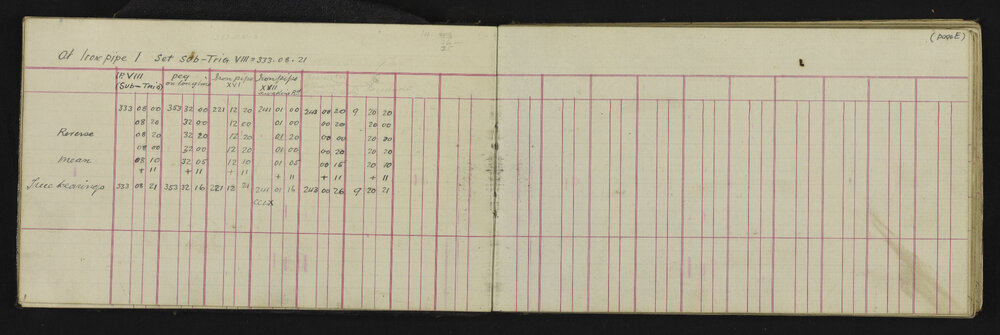 (page E)
At Iron pipe 1 Set Sub-Trig VIII = 333.08.21
I.P. VIII peg Iron pipe Iron pipe
(Sub-Trig) on Longline XVI XVII
333 08 00 353 32 00 221 12 20 241 01 00 243 00 20 9 20 20
08 20 32 00 12 00 01 00 00 20 20 00
Reverse 08 20 32 20 12 20 01 20 00 00 20 20
08 00 32 00 12 20 01 00 00 20 20 20
Mean 08 10 32 05 12 10 01 05 00 15 20 10
+ 11 + 11 + 11 + 11 + 11 + 11
True bearings 333 08 21 353 32 16 221 12 21 241 01 16 243 00 26 9 20 21